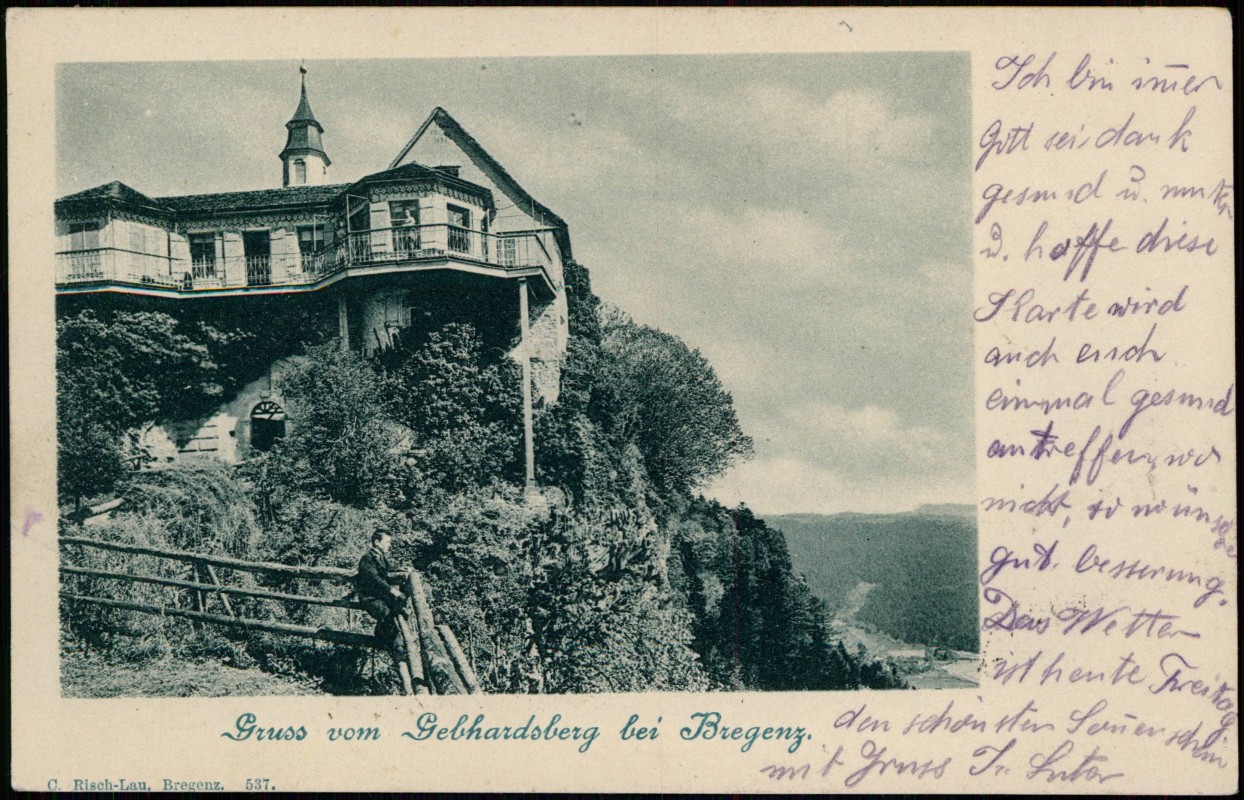 Ich bin im̄er
Gott sei dank
gesund u. munter
u. hoffe diese
Karte wird
auch euch
einmal gesund
antreffen, wo
nicht, so wünsche
gut. besserung.
Das Wetter
ist heute Freitag
den schönsten Son̄enschein
mit Gruss
Gruss vom Gebhardsberg bei Bregenz.
C. Risch-Lau, Bregenz. 537.